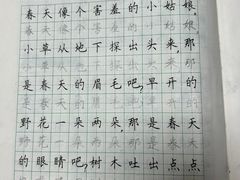 春天像个害羞的小姑娘,
小草从地下探出头来,那
是春天的眉毛吧,早开的
野花一朵两朵,那是春天
的眼睛吧,树木吐出点点